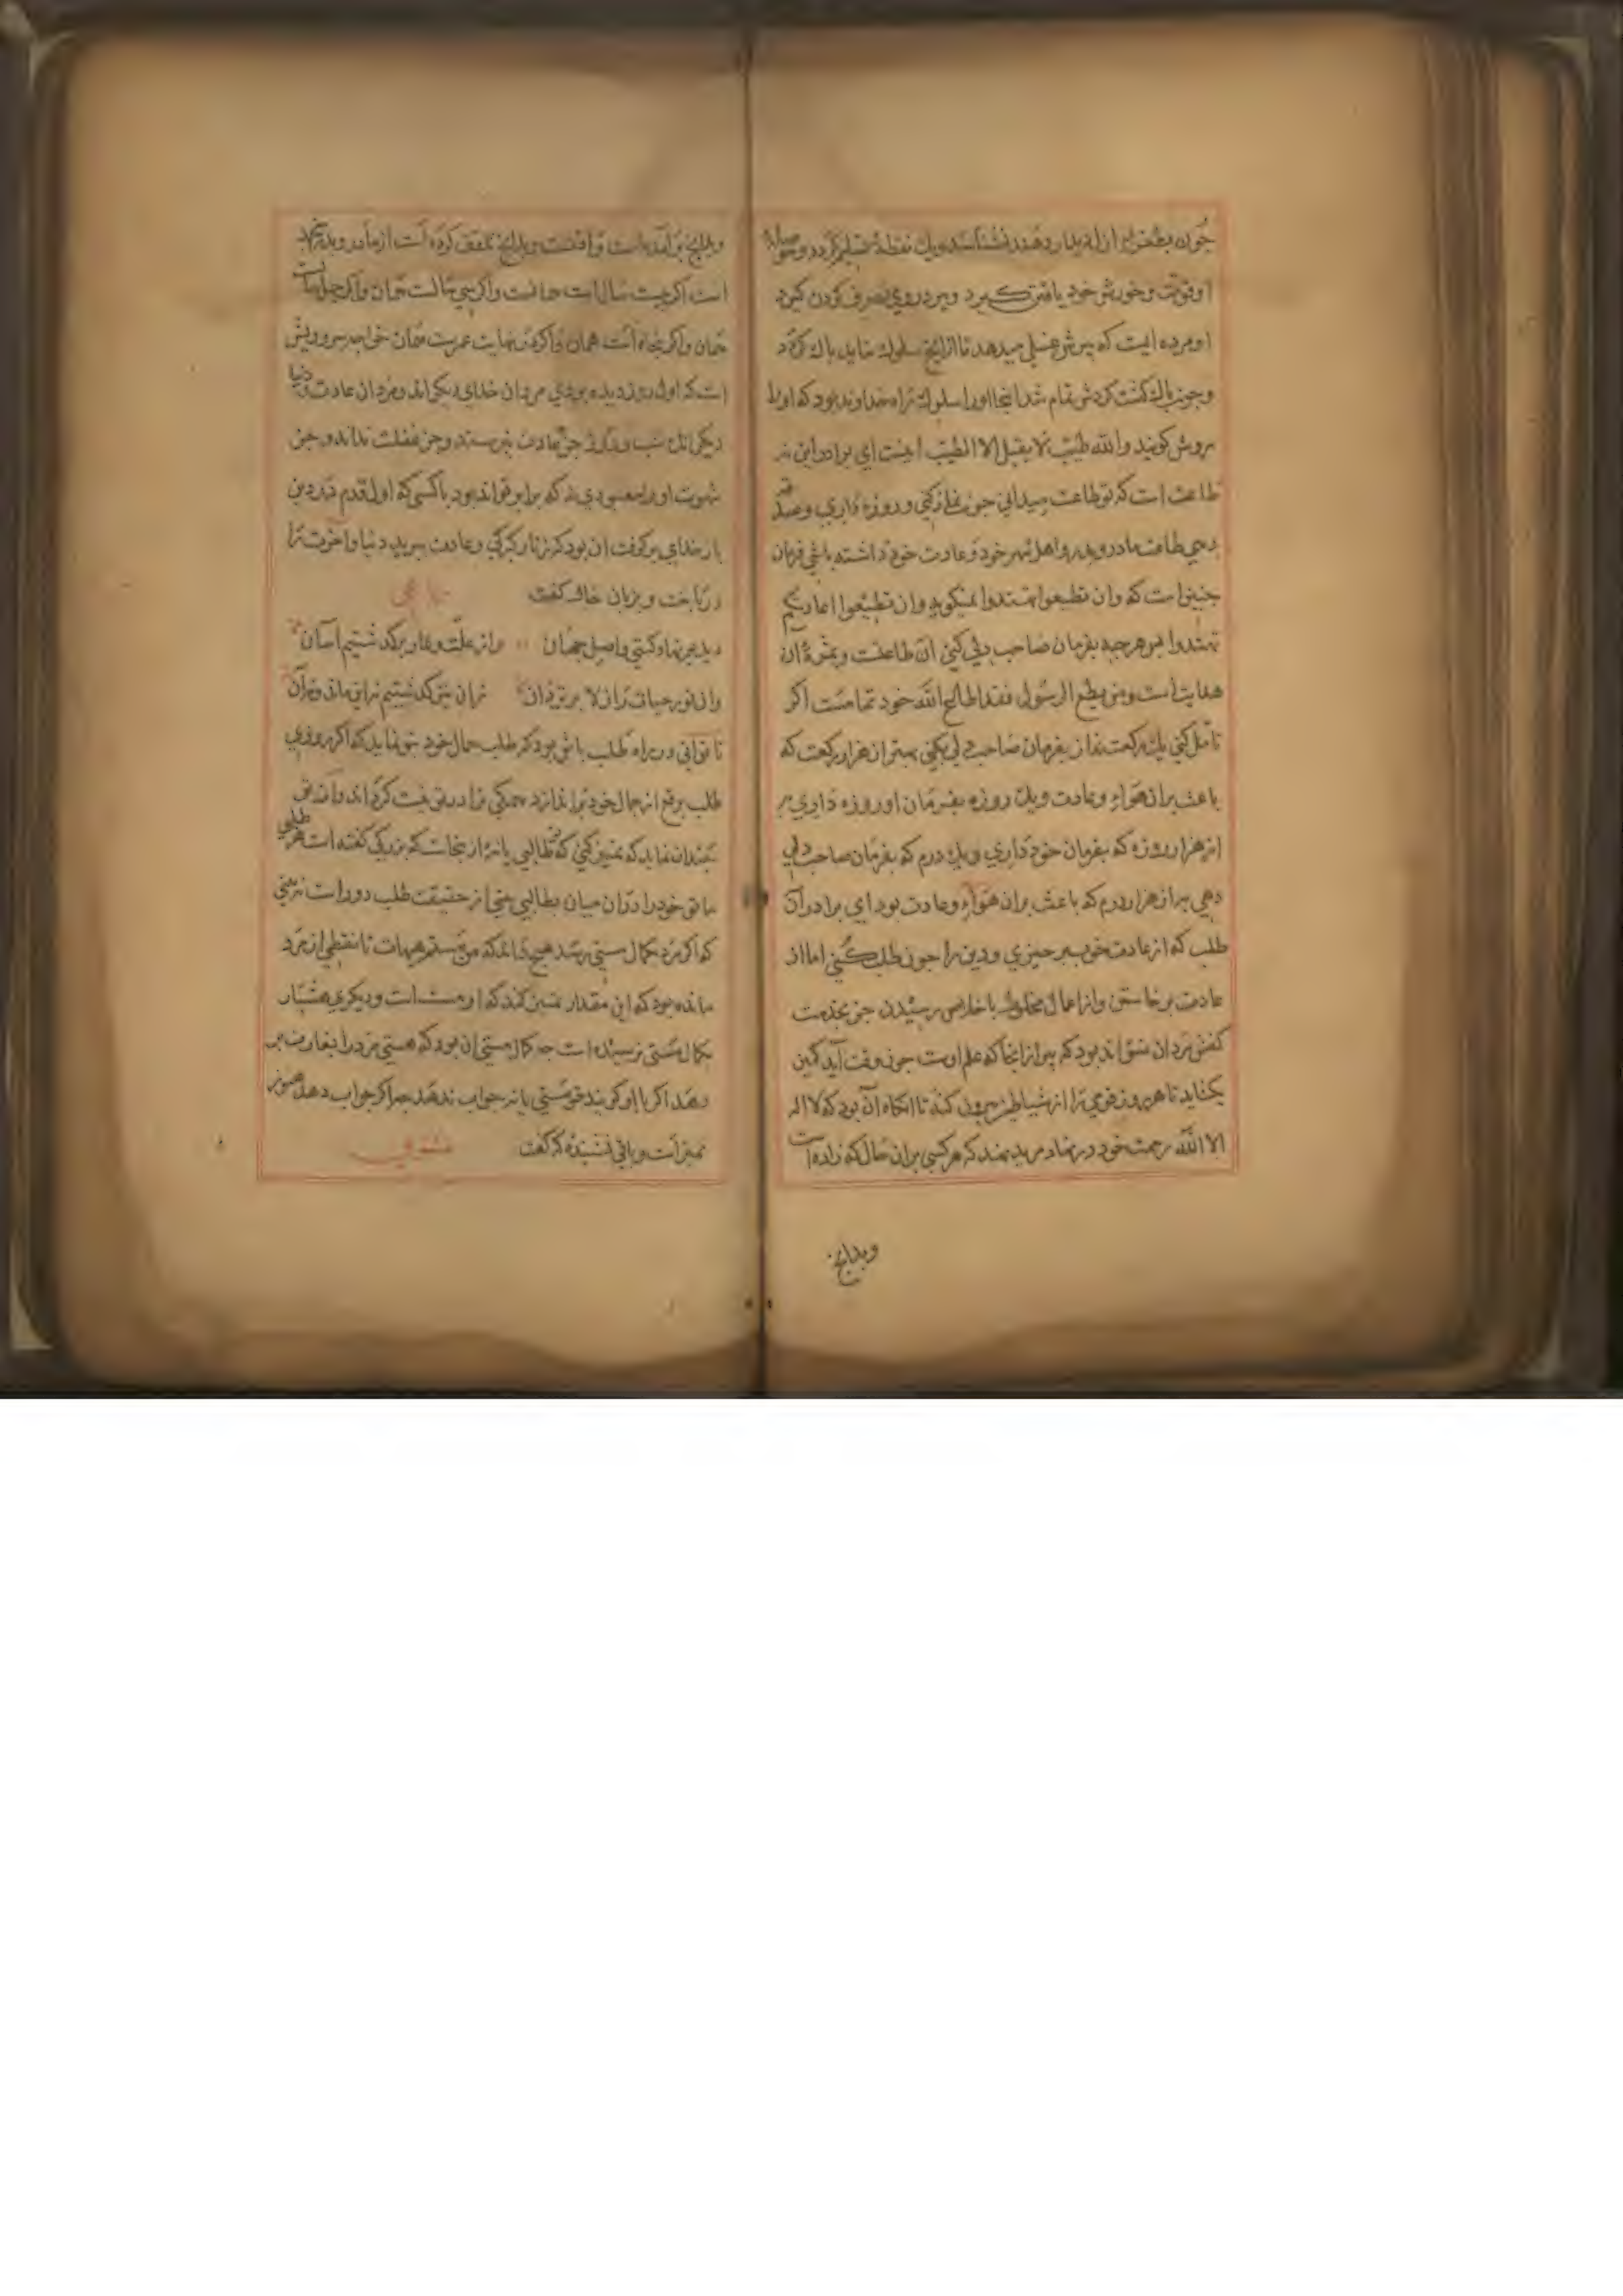 او قوت و خورش خود یافتن کیرد و پیر در وی تصرف کردن کیرد
او مرده ایست که پیرش غسلی میدهد تا از انج سلوك نباید پاك کردد
و جون پاك کشت کردش تمام شد اینجا او را سلوك راه خداوند بود که او را
روش کویند والله طیب لا یقبل الا الطیب اینست ای برادر این نه
طاعت است که تو طاعت میدانی جون نماز کنی و روزه داری و صدقه
دهی طاعت مادر و پدر و اهل شهر خود و عادت خود داشته باشی فرمان
جنین است که وان تطیعوا تهتدوا نمیکوید وان تطیعوا اعادتکم
تهتدوا هر جه بفرمان صاحب دلی کنی آن طاعتست و ثمره آن
هدایت است و من یطع الرسول فقد اطاع الله خود تمامست اکر
تامل کنی یك رکعت نماز بفرمان صاحب دلی بکنی بهتر از هزار رکعت که
باعث بران هواء و عادت و یك روزه بفرمان او روزه داری به
از هزار روزه که بفرمان خود داری و یك درم که بفرمان صاحب دلی
دهی به از هزار درم که باعث بران هواء و عادت بود ای برادر آن
طلب که از عادت خود برخیزی و دین را جون طلب کنی اما از
عادت برخاستن و از اعمال مخلوط با خلاص رسیدن جز بخدمت
کفش مردان نتواند بود که پیر از انجا که علم اوست جون وقت آید کمین
بکشاید تا هر روز قومی را از شیاطین بیرون کند تا انکاه آن بود که لا اله
الا الله رحمت خود در نهاد مرید نهد که هر کسی بران حال که زاده است
وبدانج
وبدانج برآمده است و
است اکر بیست سال است همانست و اکر سی سالست همان و اکر جهل است
همان و اکر پنجاه است همان و اکر در نهایت عمرست همان خواجه سر و ریش
است که اول روز دیده بودی مردان خدای دیکراند و مردان عادت و دنیا
دیکراند شب و روز جز عادت نپرستند و جز غفلت ندانند و جز
شهوت او را معبودی نه که برابر تواند بود با کسی که اول قدم که در دین
بار خدای بر کوفت آن بود که زنار کبرکی و عادت ببرید دنیا و آخرت را
درباخت و بزبان حال کفت
دیدیم نهاد کیتی و اصل جهان وز علت و عار برکذشتیم آسان
وان نور سیاه ز لا برتر دان زان نیز کذشتیم نه این ماند و نه آن
تا توانی در راه طلب باش بود که طلب جمال خود بتو نماید که اکر روزی
طلب برقع از جمال خود براندازد همکی ترا در تو نیست کرداند و آن قدر
بنماند که تمیز کنی که تو طالبی یا نه از ینجاست که بزرکی کفته است هر طلبی
تا تو خود را در آن میان طالبی بینی از حقیقت طلب دور است نه بینی
که اکر مرد بکمال مستی رسد هیج نداند که من مستم هیهات تا نقطه از مرد
مانده بود که این مقدار تمییز کند که او مست است و دیکری هشیار
بکمال مستی نرسیده است جه کمال مستی آن بود که هستی مرد را بغارت بر
دهد اکر با او کویند تو مستی یا نه جواب ندهد جرا که اکر جواب دهد هنوز
تمیز است و باقی نشنیده که کفت